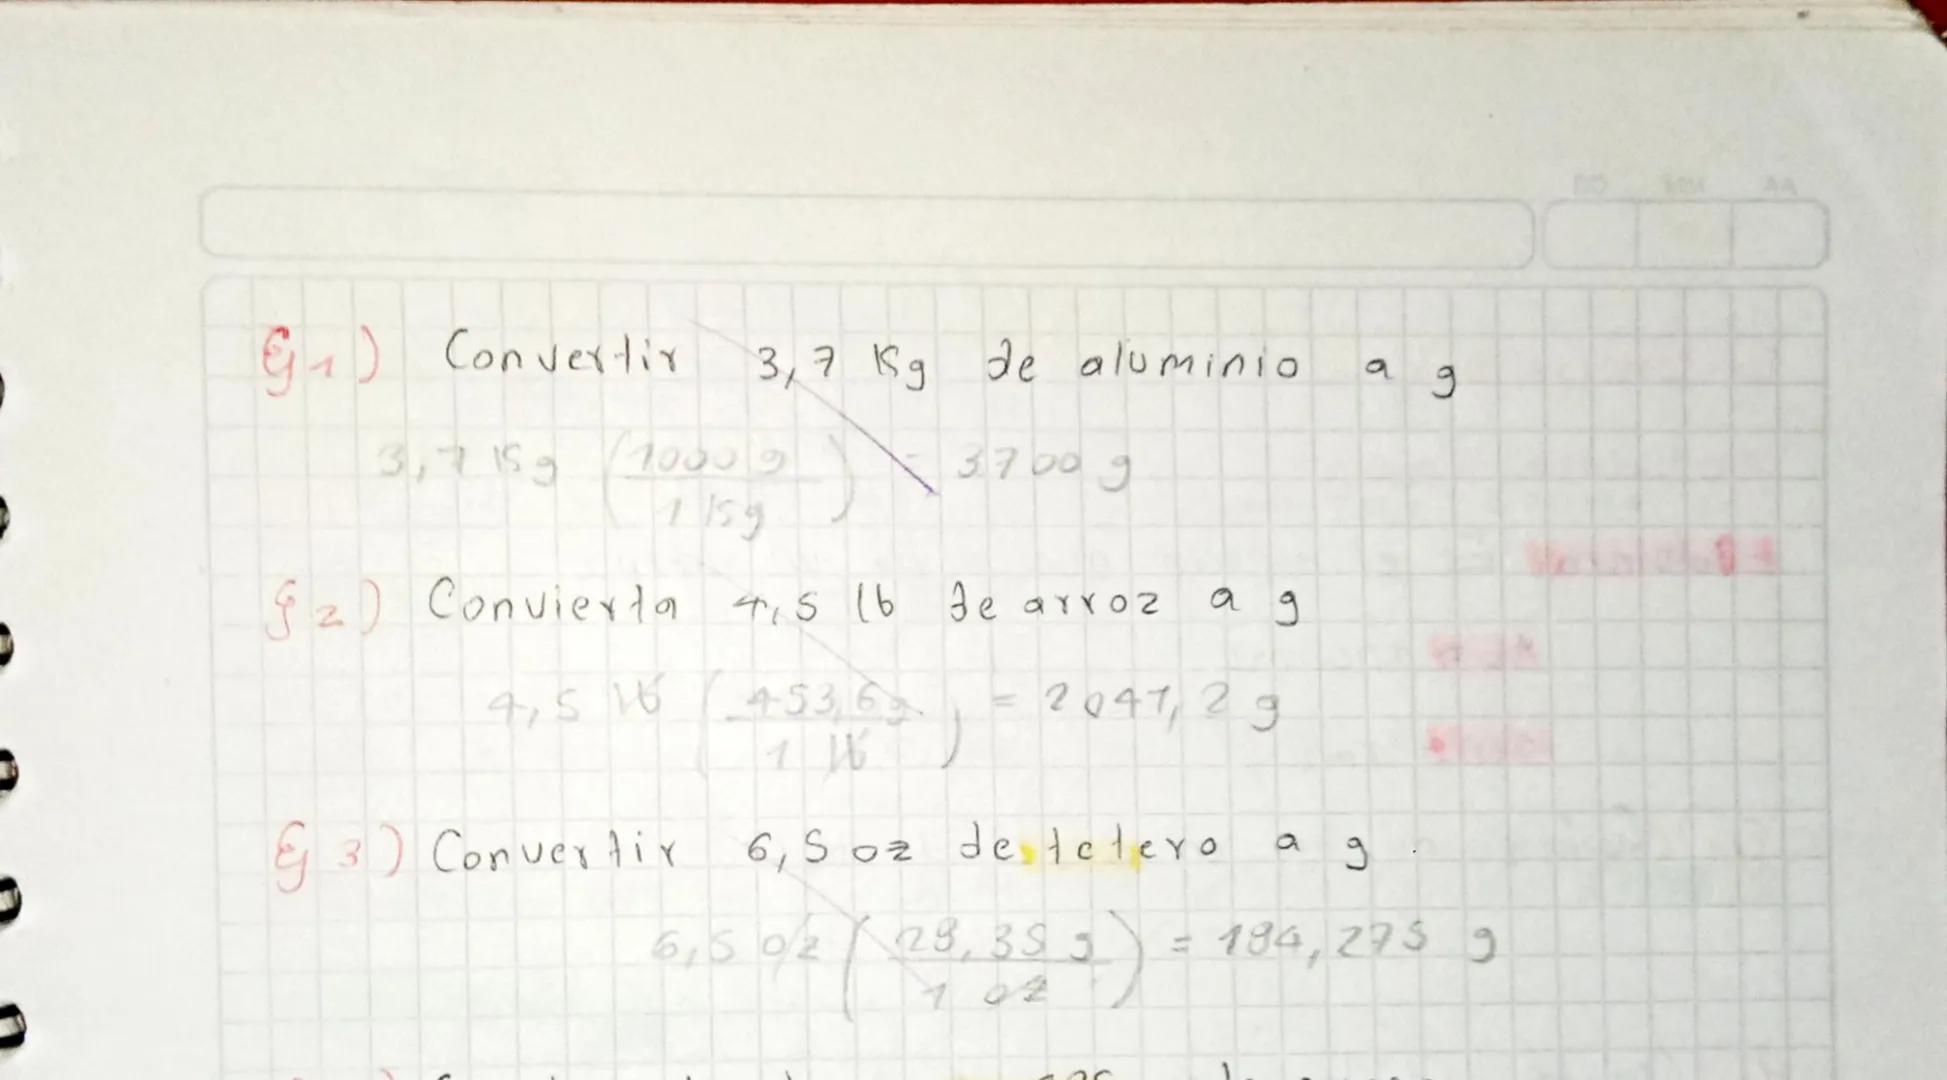 DD MM AA
Ej 1) Convertir 3,7 Kg de aluminio a g
3,7 Kg (1000 g / 1 Kg) = 3700 g
Ej 2) Convierta 4,5 lb de arroz a g
4,5 lb (453,6 g / 1 lb) = 2041,2 g
Ej 3) Convertir 6,5 oz de tetero a g.
6,5 oz (28,35 g / 1 oz) = 184,275 g